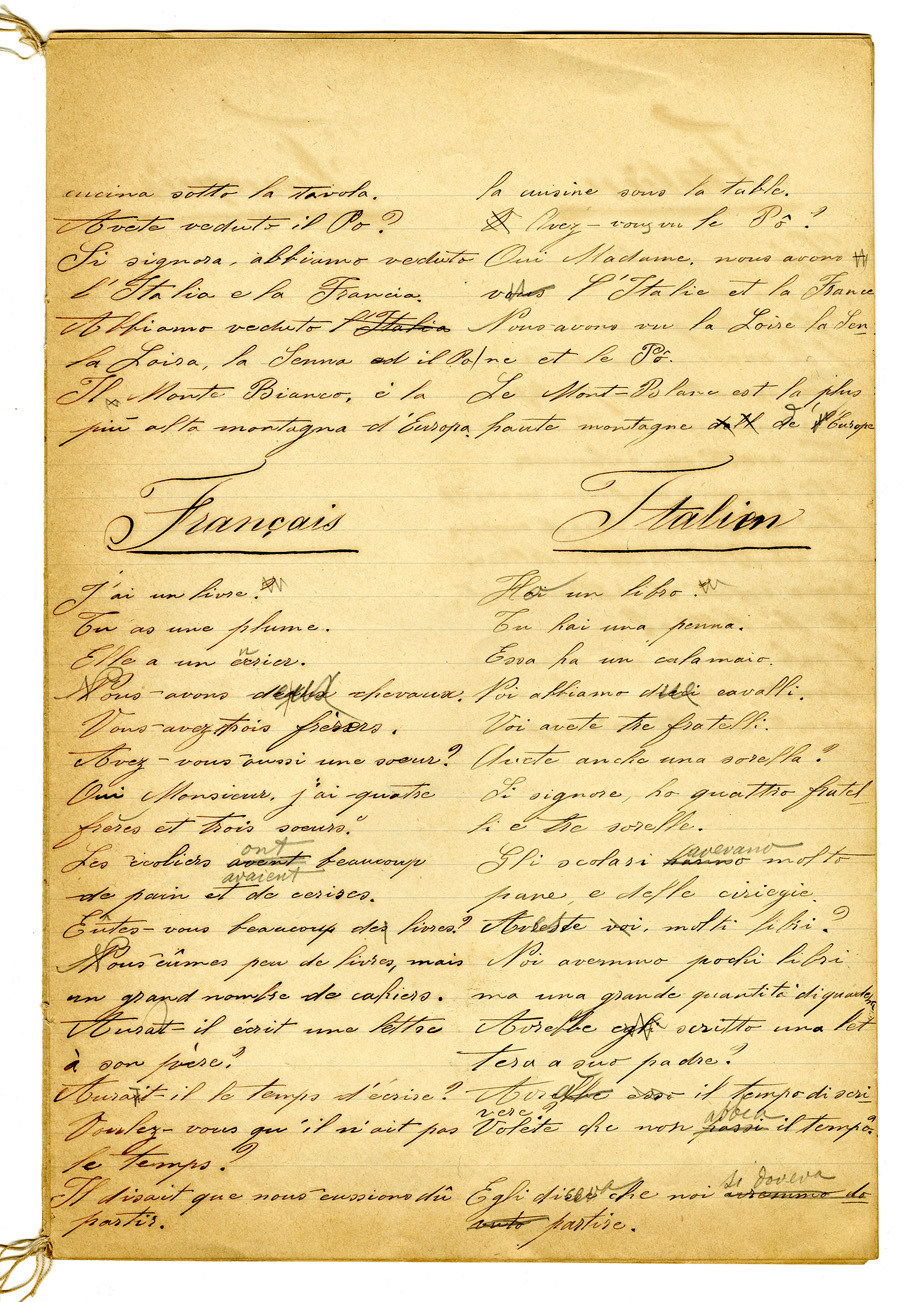 cucina sotto la tavola.
Avete veduto il Po?
Si signora, abbiamo veduto
l'Italia e la Francia.
Abbiamo veduto l'Italia
la Loira, la Senna ed il Po
Il Monte Bianco, è la
più alta montagna d'Europa.
la cuisine sous la table.
Avez-vous vu le Pô?
Oui Madame, nous avons
vous l'Italie et la France
Nous avons vu la Loire la Sen
ne et le Pô.
Le Mont-Blanc est la plus
haute montagne de l'Europe
Français
J'ai un livre.
Tu as une plume.
Elle a un encrier.
Nous-avons deux chevaux.
Vous-avez trois frères.
Avez-vous aussi une soeur?
Oui Monsieur, j'ai quatre
frères et trois soeurs.
ont
Les écoliers avent beaucoup
avaient
de pain et de cerises.
Eûtes-vous beaucoup des livres?
Nous eûmes peu de livres, mais
un grand nombre de cahiers.
Aurait-il écrit une lettre
à son père?
Aurait-il le temps d'écrire?
Voulez-vous qu'il n'ait pas
le temps?
Il disait que nous eussions dû
partir.
Italien
Hai un libro.
Tu hai una penna.
Essa ha un calamaio.
Noi abbiamo due cavalli.
Voi avete tre fratelli.
Avete anche una sorella?
Si signore, ho quattro fratel-
li e tre sorelle.
avevano
Gli scolari hanno molto
pane, e delle ciriegie.
Aveste voi, molti libri?
Noi avemmo pochi libri
ma una grande quantità di quaderni
Avrebbe egli scritto una let
tera a suo padre?
Avrebbe esso il tempo di scri-
vere?
abbia
Volete che non passi il tempo?
si doveva
Egli diceva che noi avremmo do
vuto partire.